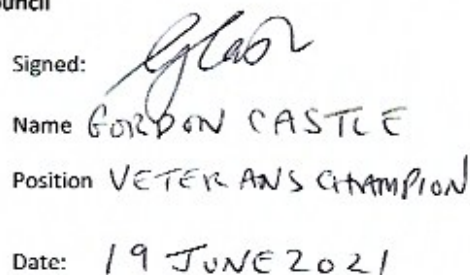 Signed:
Name GORDON CASTLE
Position VETERANS CHAMPION
Date: 19 JUNE 2021